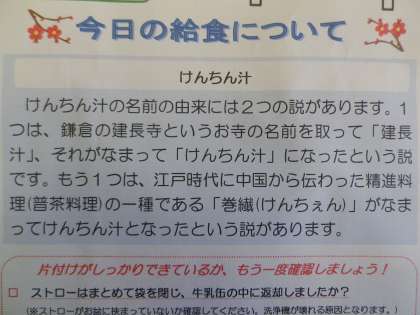 今日の給食について
けんちん汁
けんちん汁の名前の由来には２つの説があります。１
つは、鎌倉の建長寺というお寺の名前を取って「建長
汁」、それがなまって「けんちん汁」になったという説
です。もう１つは、江戸時代に中国から伝わった精進料
理(普茶料理)の一種である「巻繊(けんちぇん)」がな
まってけんちん汁となったという説があります。
片付けがしっかりできているか、もう一度確認しましょう！
□ ストローはまとめて袋を閉じ、牛乳缶の中に返却しましたか？
(※ストローがお盆に挟まっていないか確認してください。洗浄機が壊れる原因となります。)